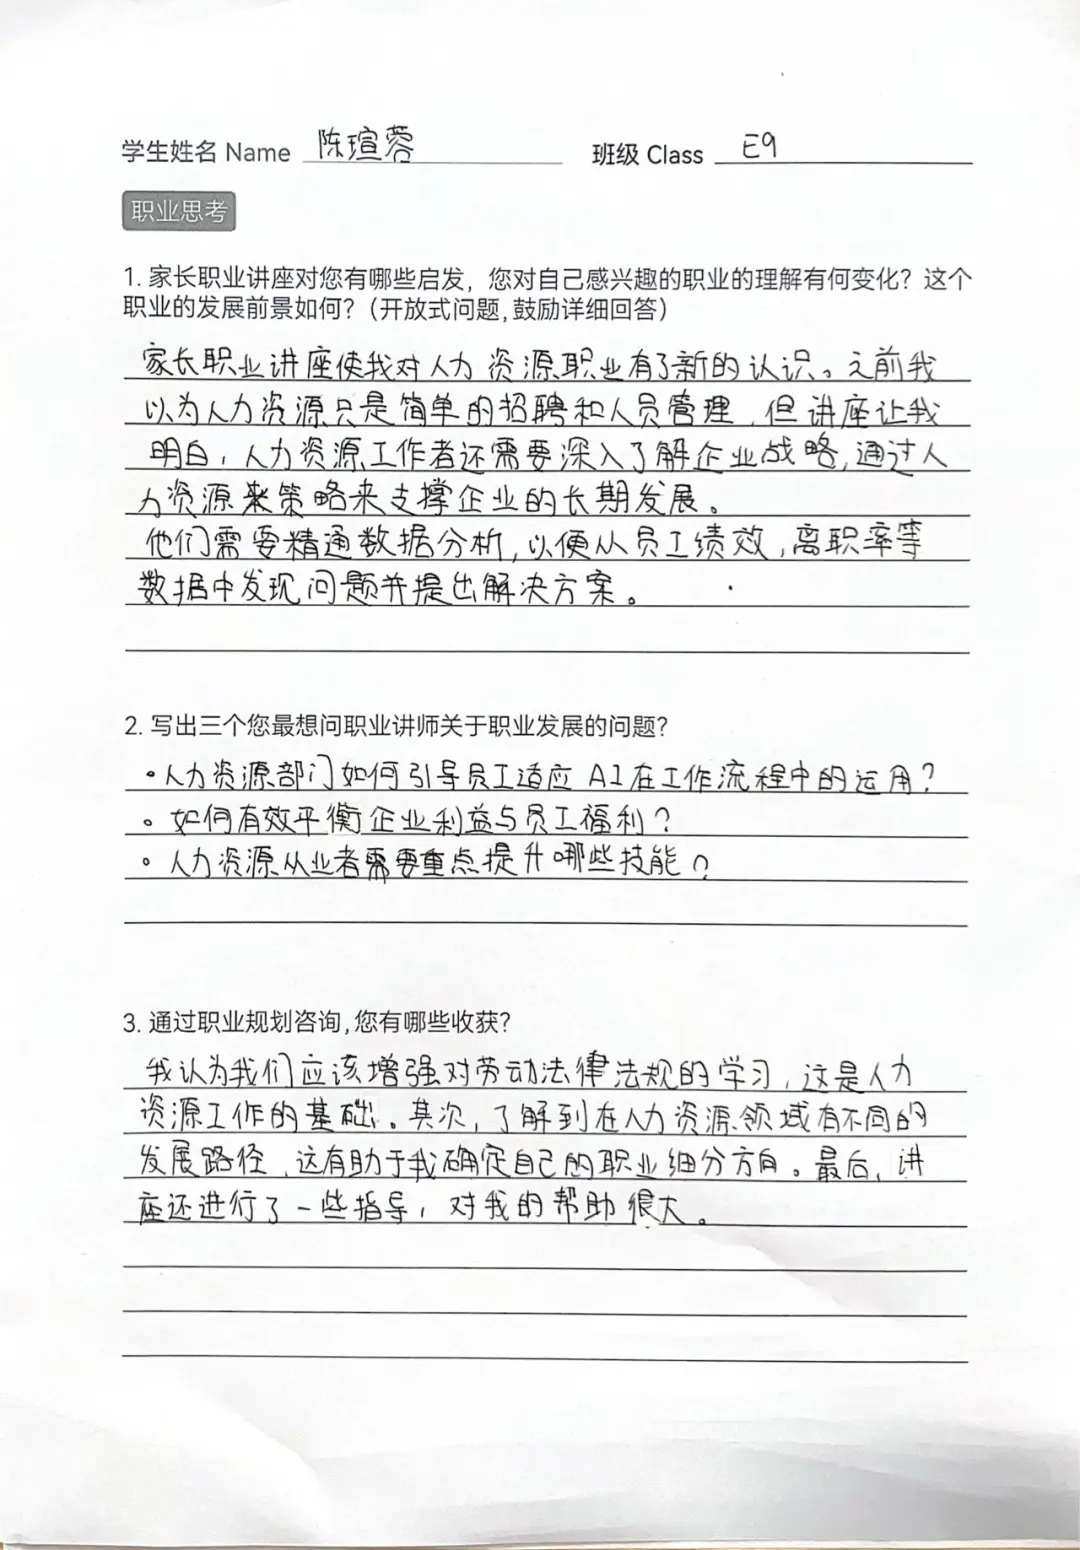 学生姓名 Name 陈瑄蓉 班级 Class E9
职业思考
1. 家长职业讲座对您有哪些启发，您对自己感兴趣的职业的理解有何变化？这个
职业的发展前景如何？（开放式问题，鼓励详细回答）
家长职业讲座使我对人力资源职业有了新的认识。之前我
以为人力资源只是简单的招聘和人员管理，但讲座让我
明白，人力资源工作者还需要深入了解企业战略，通过人
力资源来策略来支撑企业的长期发展。
他们需要精通数据分析，以便从员工绩效，离职率等
数据中发现问题并提出解决方案。
2. 写出三个您最想问职业讲师关于职业发展的问题？
•人力资源部门如何引导员工适应AI在工作流程中的运用？
。如何有效平衡企业利益与员工福利？
。人力资源从业者需要重点提升哪些技能？
3. 通过职业规划咨询，您有哪些收获？
我认为我们应该增强对劳动法律法规的学习，这是人力
资源工作的基础。其次，了解到在人力资源领域有不同的
发展路径，这有助于我确定自己的职业细分方向。最后，讲
座还进行了一些指导，对我的帮助很大。